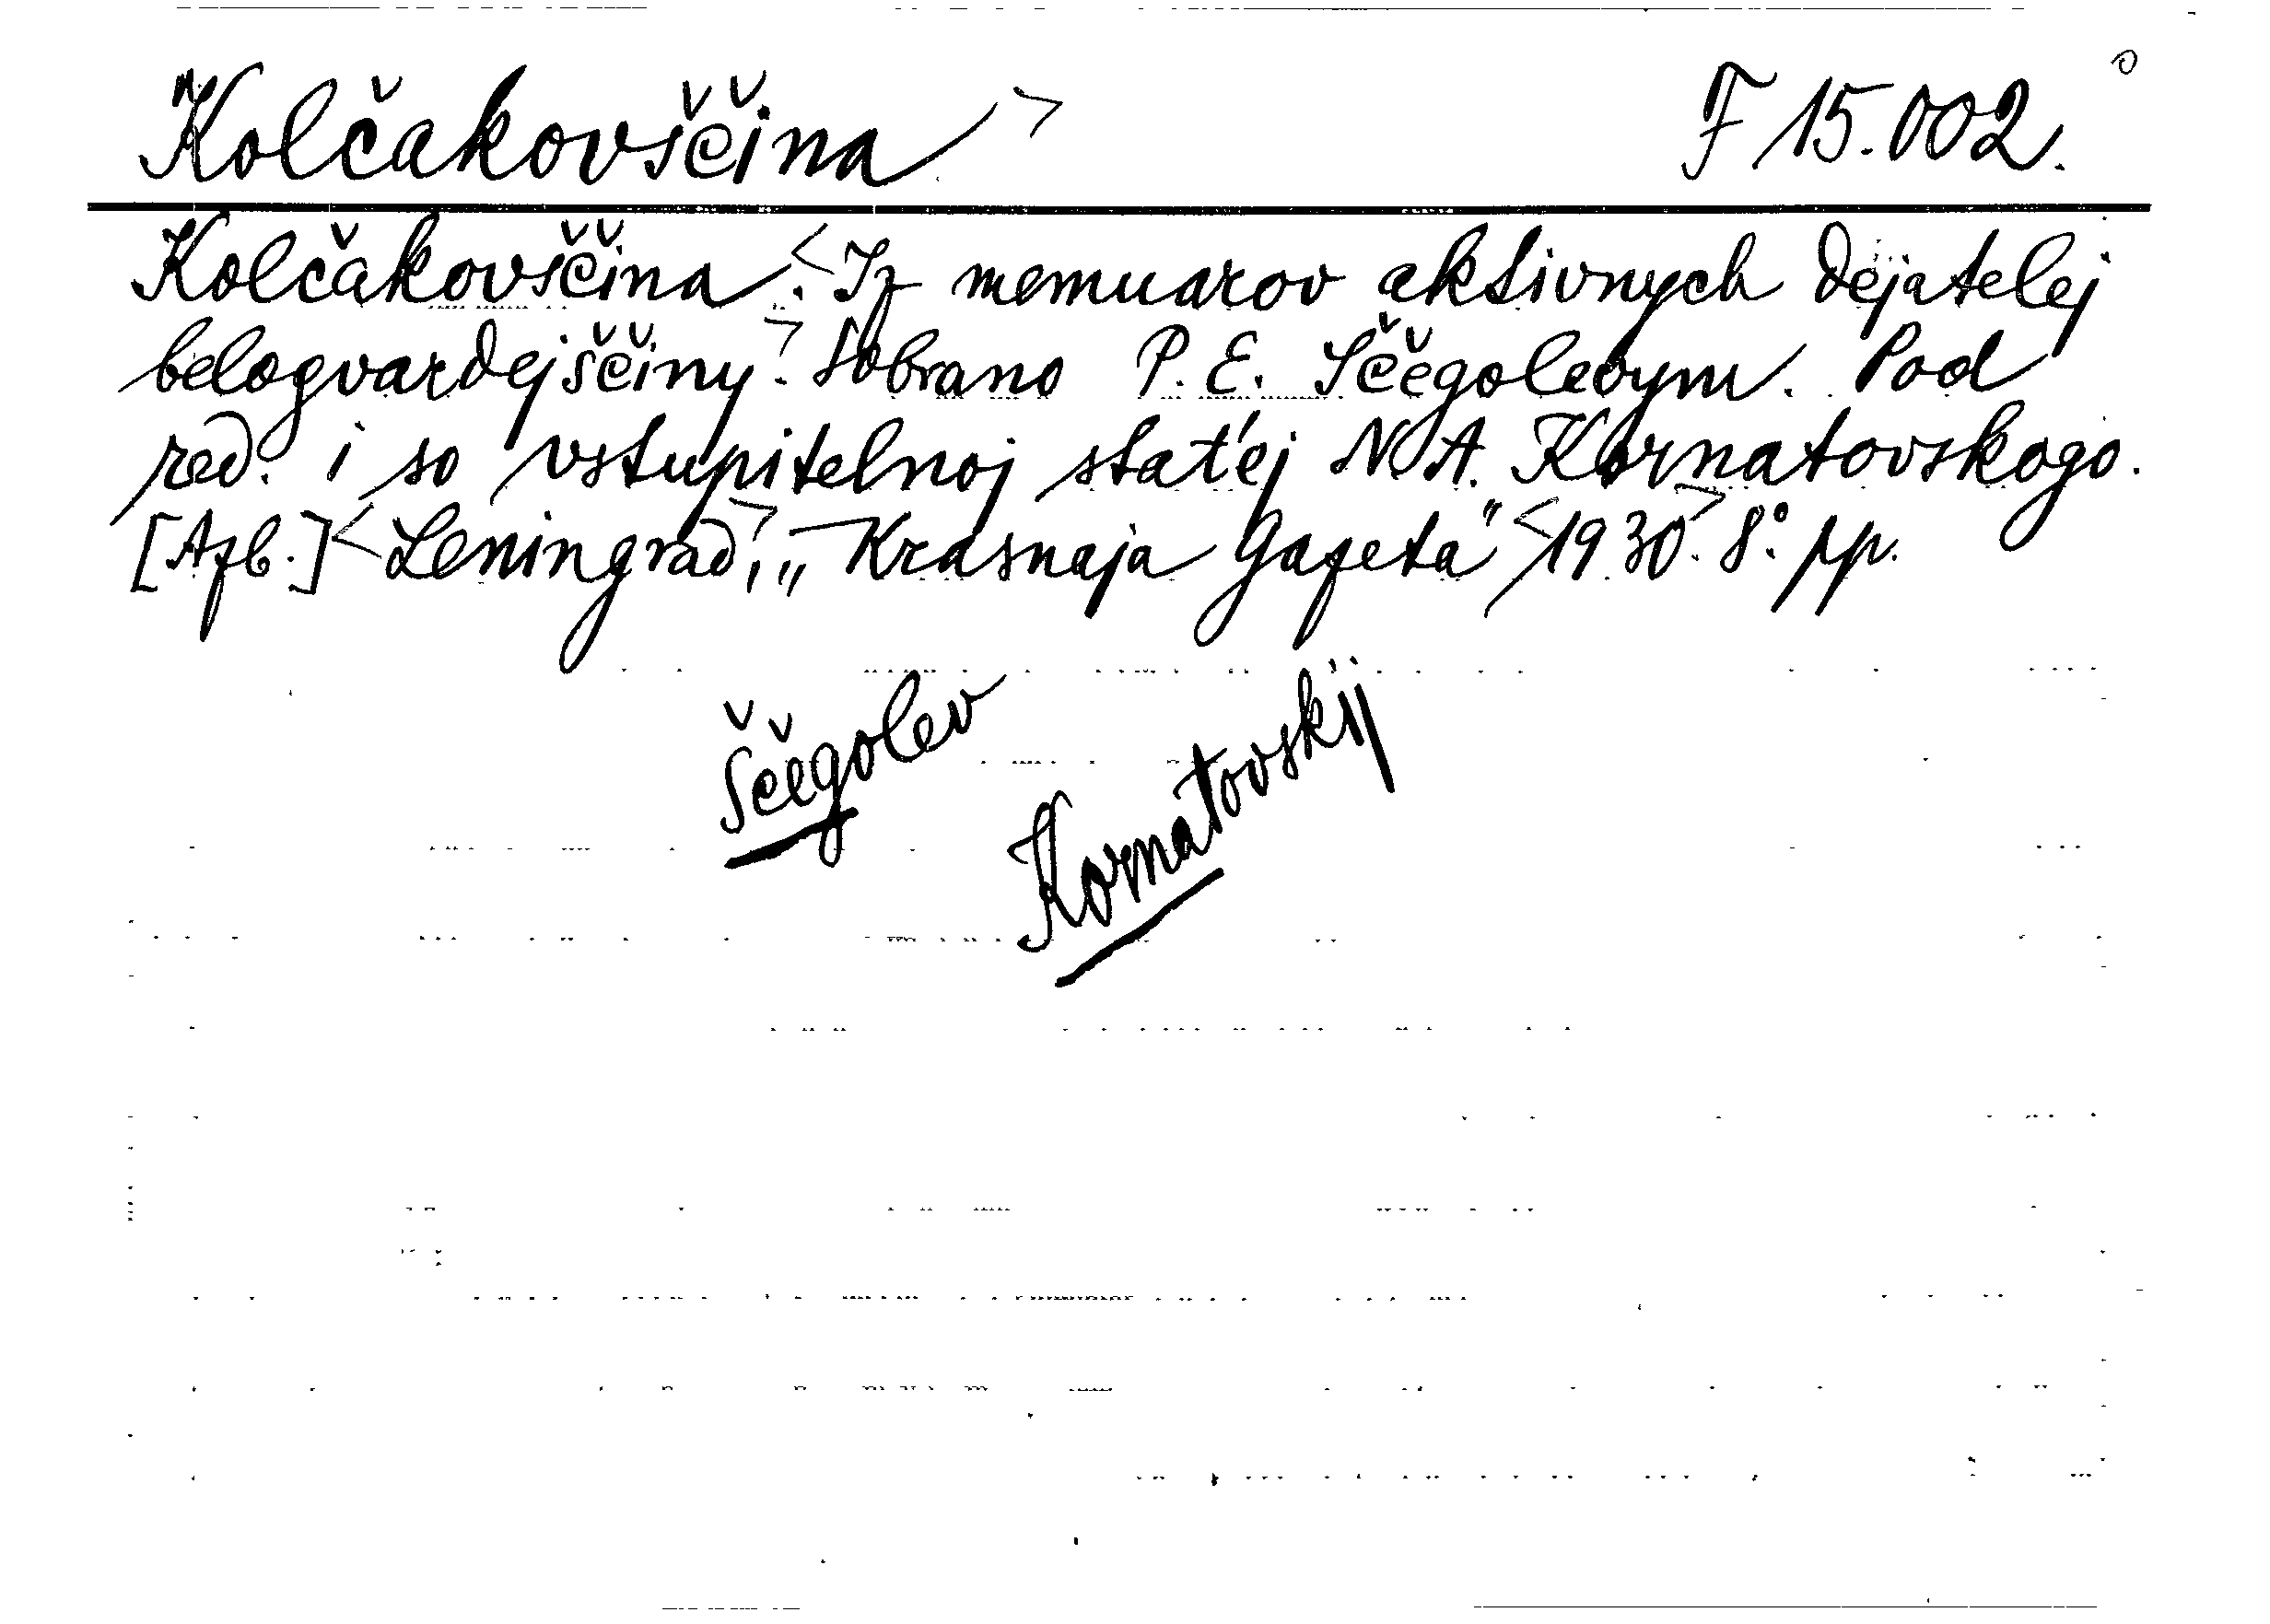 Kolčakovščina
F 15.002.
Kolčakovščina. Iz memuarov aktivnych dejatelej
belogvardejščiny. Sobrano P. E. Ščegolevym. Pod
red. i so vstupitelnoj stat'ej N. A. Kornatovskogo.
[Azb.] Leningrad, „Krasnaja Gazeta" 1930. 8°. pp.
Ščegolev
Kornatovskij